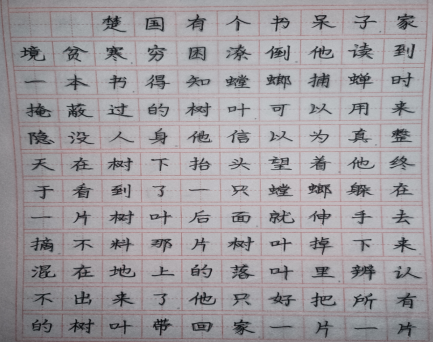 楚国有个书呆子家
境贫寒穷困潦倒他读到
一本书得知螳螂捕蝉时
掩蔽过的树叶可以用来
隐没人身他信以为真整
天在树下抬头望着他终
于看到了一只螳螂躲在
一片树叶后面就伸手去
摘不料那片树叶掉下来
混在地上的落叶里辨认
不出来了他只好把所有
的树叶带回家一片一片